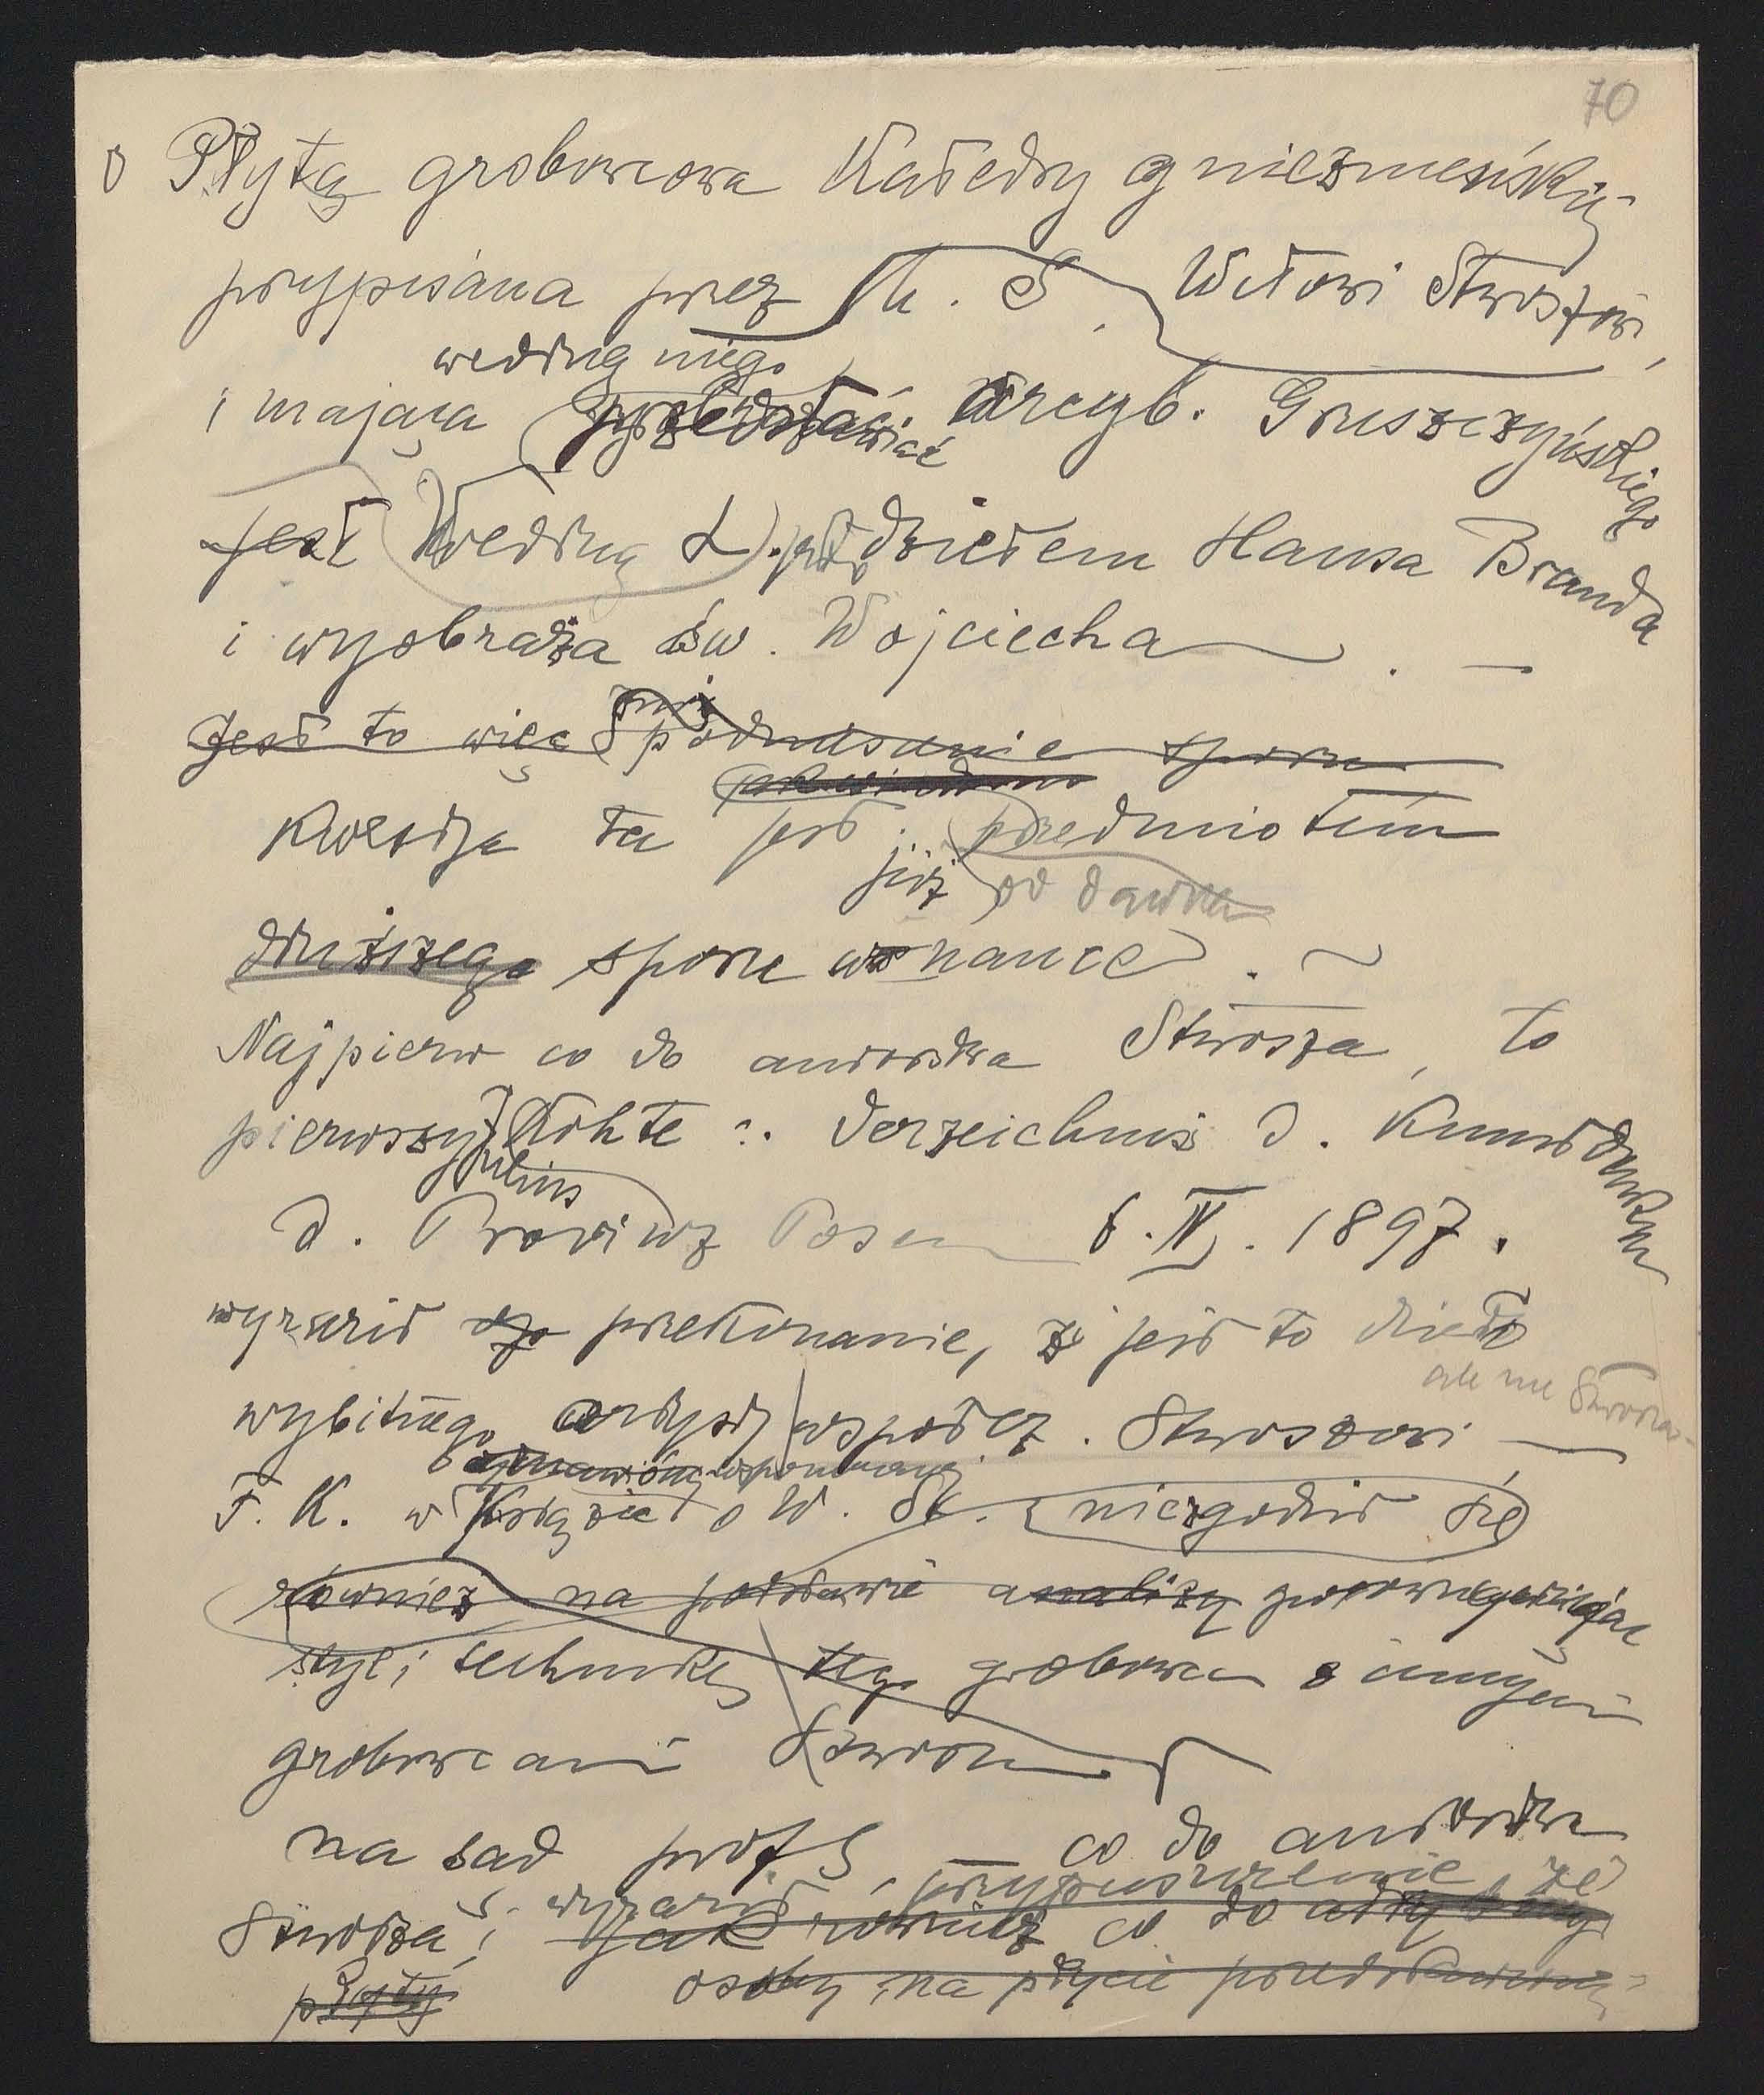 70
o Płytą grobowcowa Katedry gnieźnieńskiej
przypisana przez M. S. Witowi Stwoszowi,
według niego
i mająca przedstawiać arcyb. Gruszczyńskiego
jest według L. jest dziełem Hansa Branda
i wyobraża św. Wojciecha. —
Jest to więc podnoszenie sporu
Kwestja ta jest przedmiotem
już od dawna
dłuższego sporu w nauce. ~
Najpierw co do autorstwa Stwosza, to
pierwszy Kohte :. Verzeichnis d. Kunstdenkm
Julius
d. Provinz Posen b. IV. 1897.
wyraził przekonanie, że jest to dzieło
ale nie Stwosza
wybitnego artysty współcz. Stwoszowi —
wspomnianej
F. K. w Książce o W. St. niezgodził się
również na podstawie analizy porównując
styl i technikę tego grobowca z innymi
grobowcami Stwosza
na sąd prof S co do autorstwa
S. wyraził przypuszczenie, że
Stwosza, jak również co do
płyty osoby na płycie przedstawionej